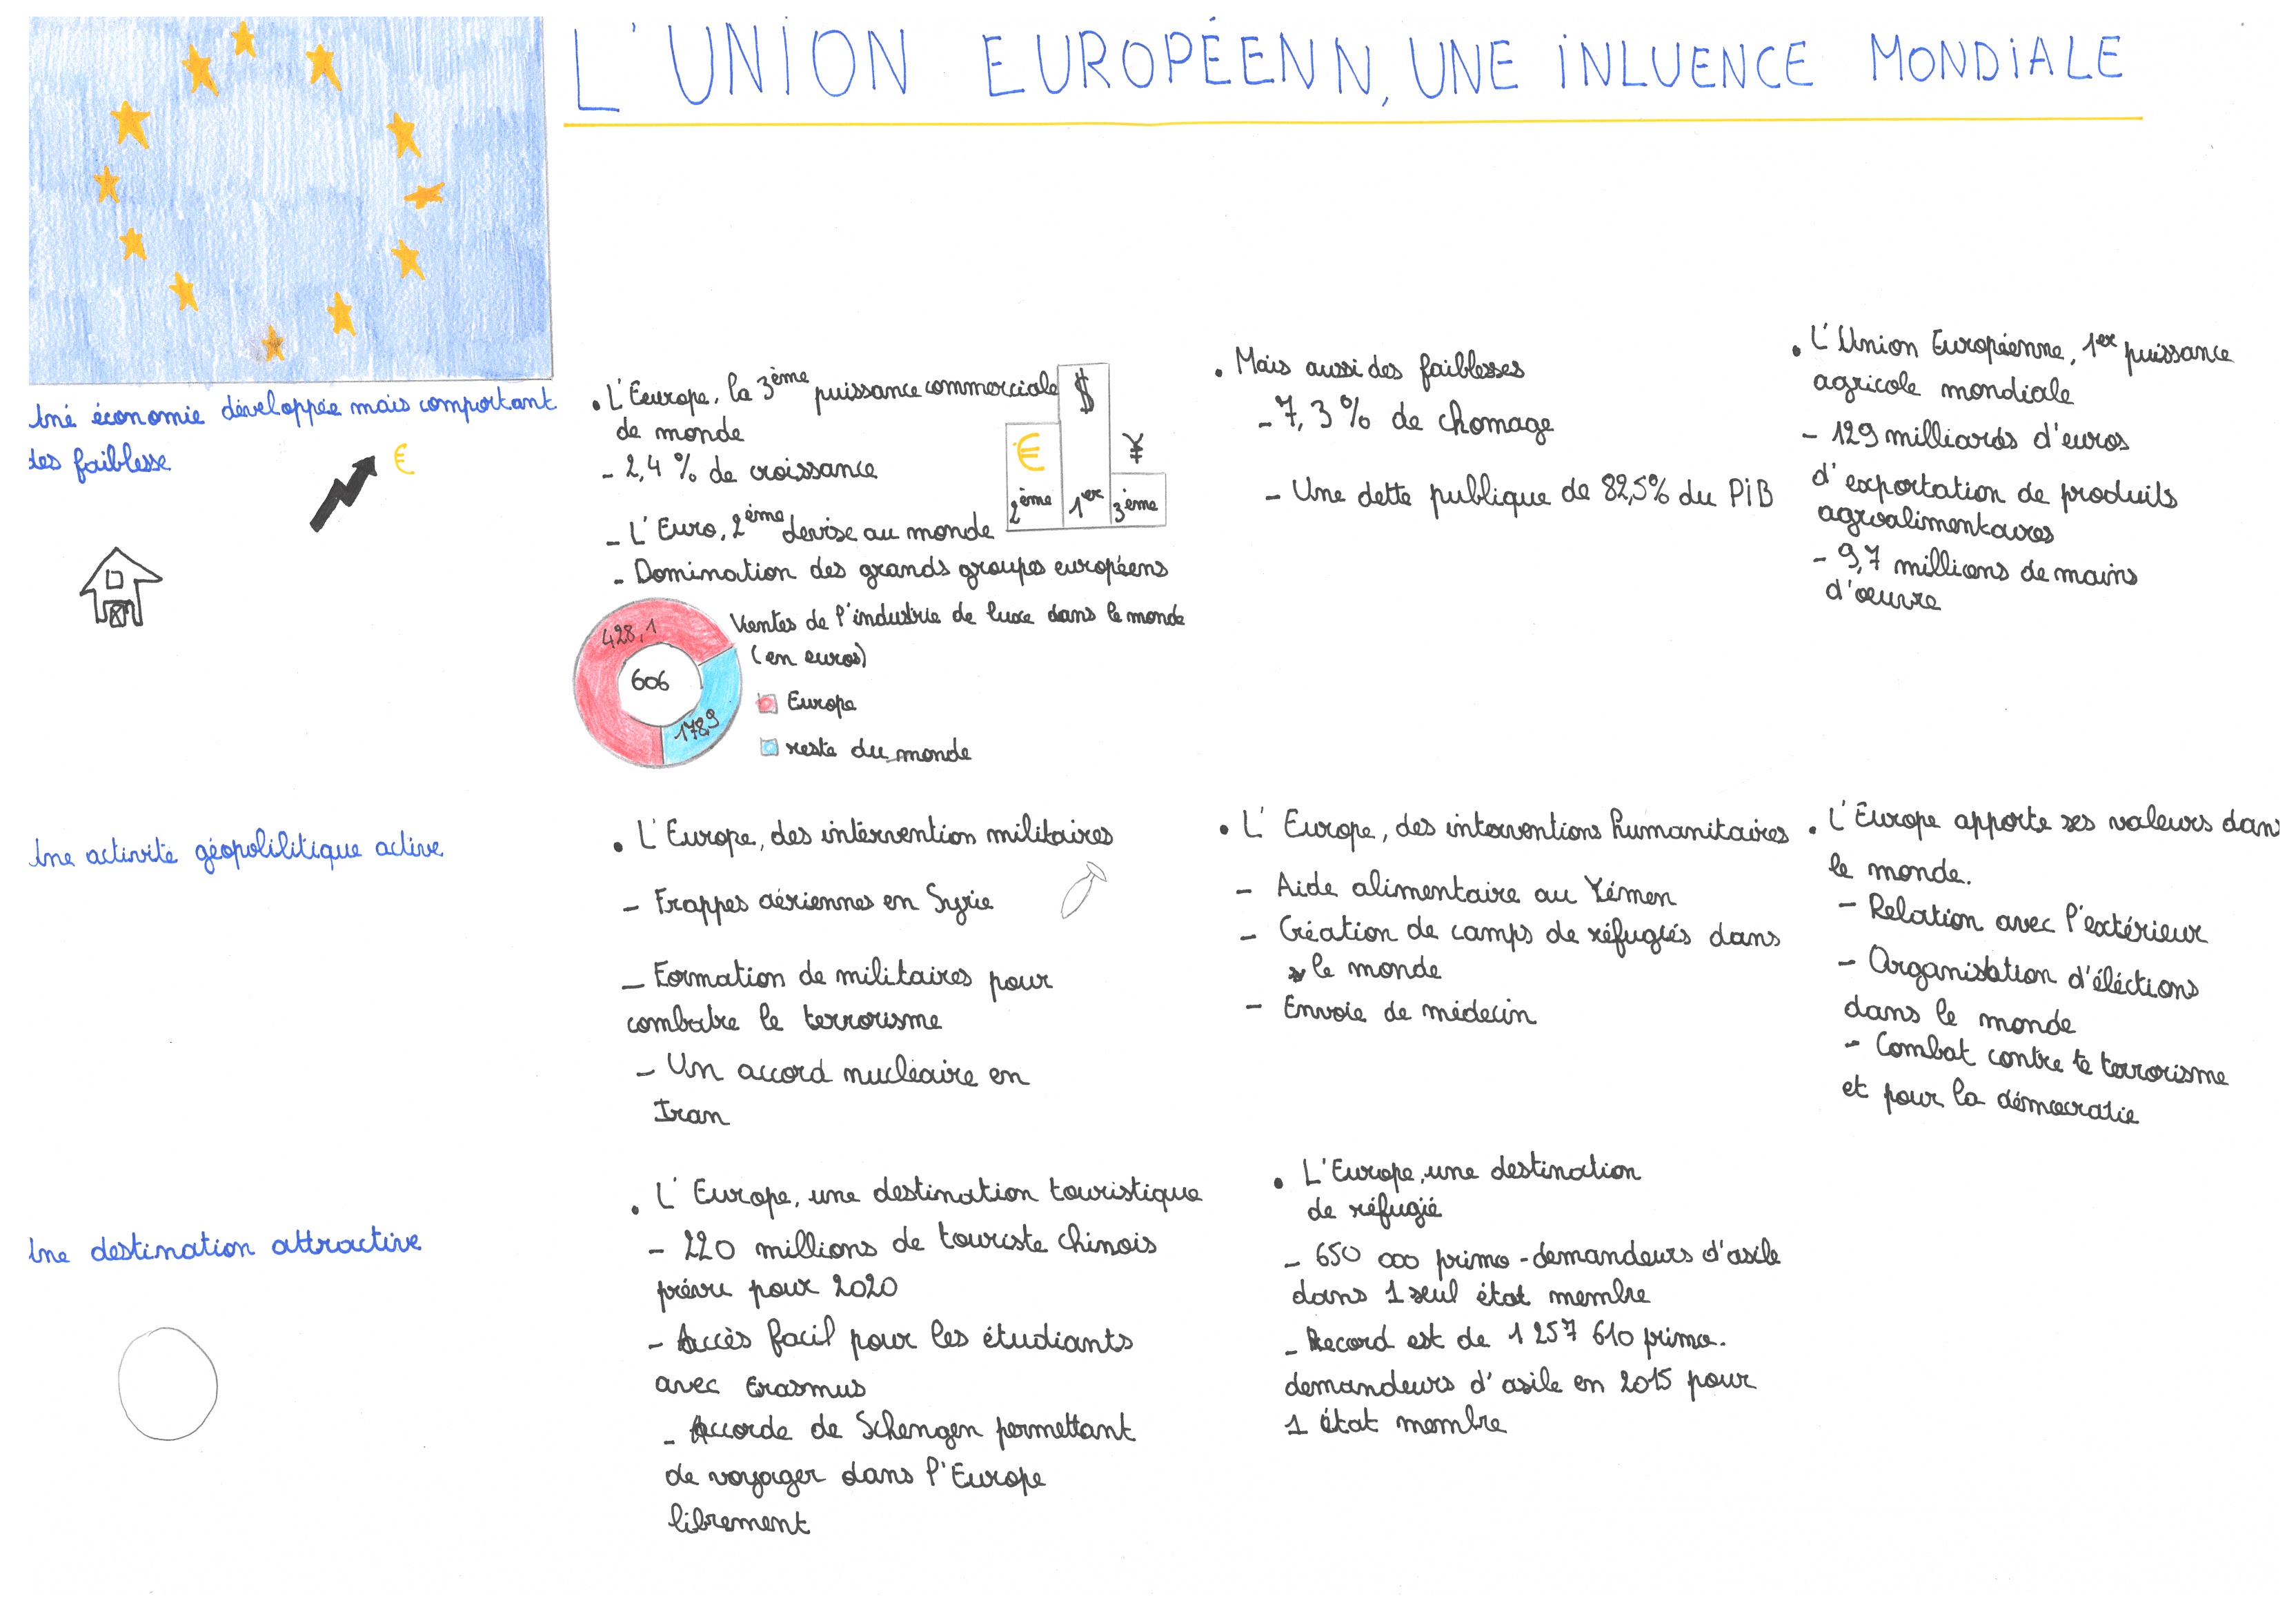 L'UNION EUROPÉENN, UNE INLUENCE MONDIALE
Uné économie développée mais comportant
des faiblesse
€
• L'Eeurope, la 3ème puissance commerciale
de monde
- 2,4 % de croissance
- L'Euro, 2ème devise au monde
- Domination des grands groupes européens
$
€
¥
2ème
1er
3ème
Ventes de l'industrie de luxe dans le monde
(en euros)
428,1
606
178,9
Europe
reste du monde
• Mais aussi des faiblesses
- 7,3 % de chomage
- Une dette publique de 82,5% du PIB
• L'Union Européenne, 1er puissance
agricole mondiale
- 129 milliards d'euros
d'exportation de produits
agroalimentaires
- 9,7 millions de mains
d'œuvre
Une activité géopolilitique active
• L'Europe, des intervention militaires
- Frappes aériennes en Syrie
- Formation de militaires pour
combatre le terrorisme
- Un accord nucléaire en
Iran
• L'Europe, des interventions humanitaires
- Aide alimentaire au Yémen
- Création de camps de réfugiés dans
le monde
- Envoie de médecin
• L'Europe apporte ses valeurs dans
le monde.
- Relation avec l'extérieur
- Organisation d'éléctions
dans le monde
- Combat contre le terrorisme
et pour la démocratie
Une destination attractive
• L'Europe, une destination touristique
- 220 millions de touriste chinois
prévu pour 2020
- Accès facil pour les étudiants
avec Erasmus
- Accorde de Schengen permettant
de voyager dans l'Europe
librement
• L'Europe, une destination
de réfugié
- 650 000 primo-demandeurs d'asile
dans 1 seul état membre
- Record est de 1 257 610 primo-
demandeurs d'asile en 2015 pour
1 état membre